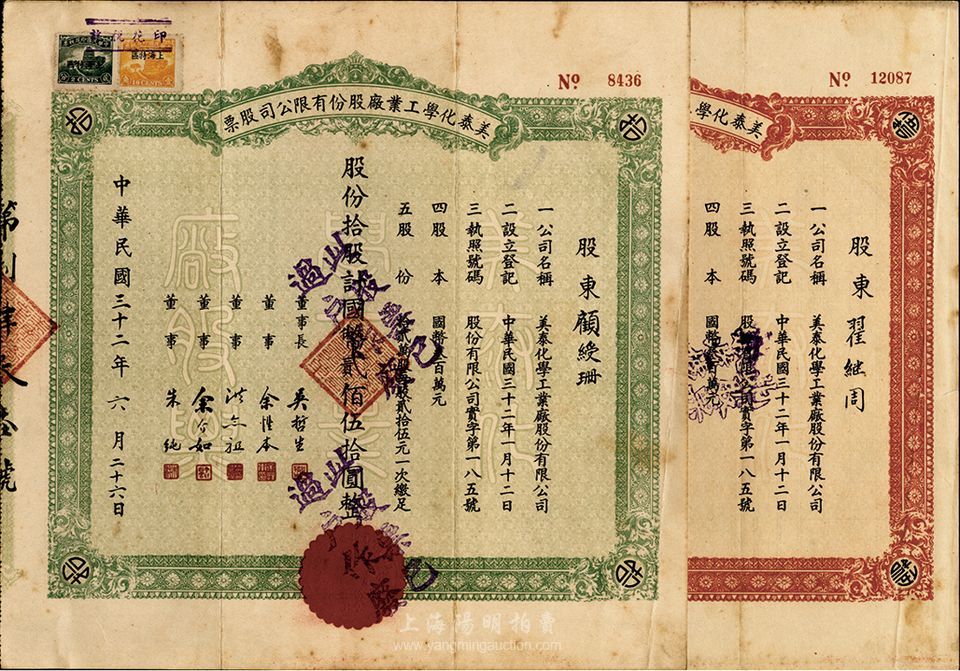 印花稅票
2 CENTS
上海特區
10 CENTS
Nº 8436
美泰化學工業廠股份有限公司股票
股東 顧綬珊
一 公司名稱 美泰化學工業廠股份有限公司
二 設立登記 中華民國三十二年一月十二日
三 執照號碼 股份有限公司實字第一八五號
四 股本 國幣百萬元
五 股份 萬股貳拾伍元一次繳足
股份拾股計國幣貳佰伍拾圓整
董事長 吳哲生
董事 余性本
董事 祖
董事 余介如
董事 朱純
中華民國三十二年六月二十六日
此股票已過
此股票已過
第 號
Nº 12087
美泰化學
股東 翟繼周
一 公司名稱 美泰化學工業廠股份有限公司
二 設立登記 中華民國三十二年一月十二日
三 執照號碼 股有限公司實字第一八五號
四 股本 國幣百萬元
上海陽明拍賣
www.yangmingauction.com